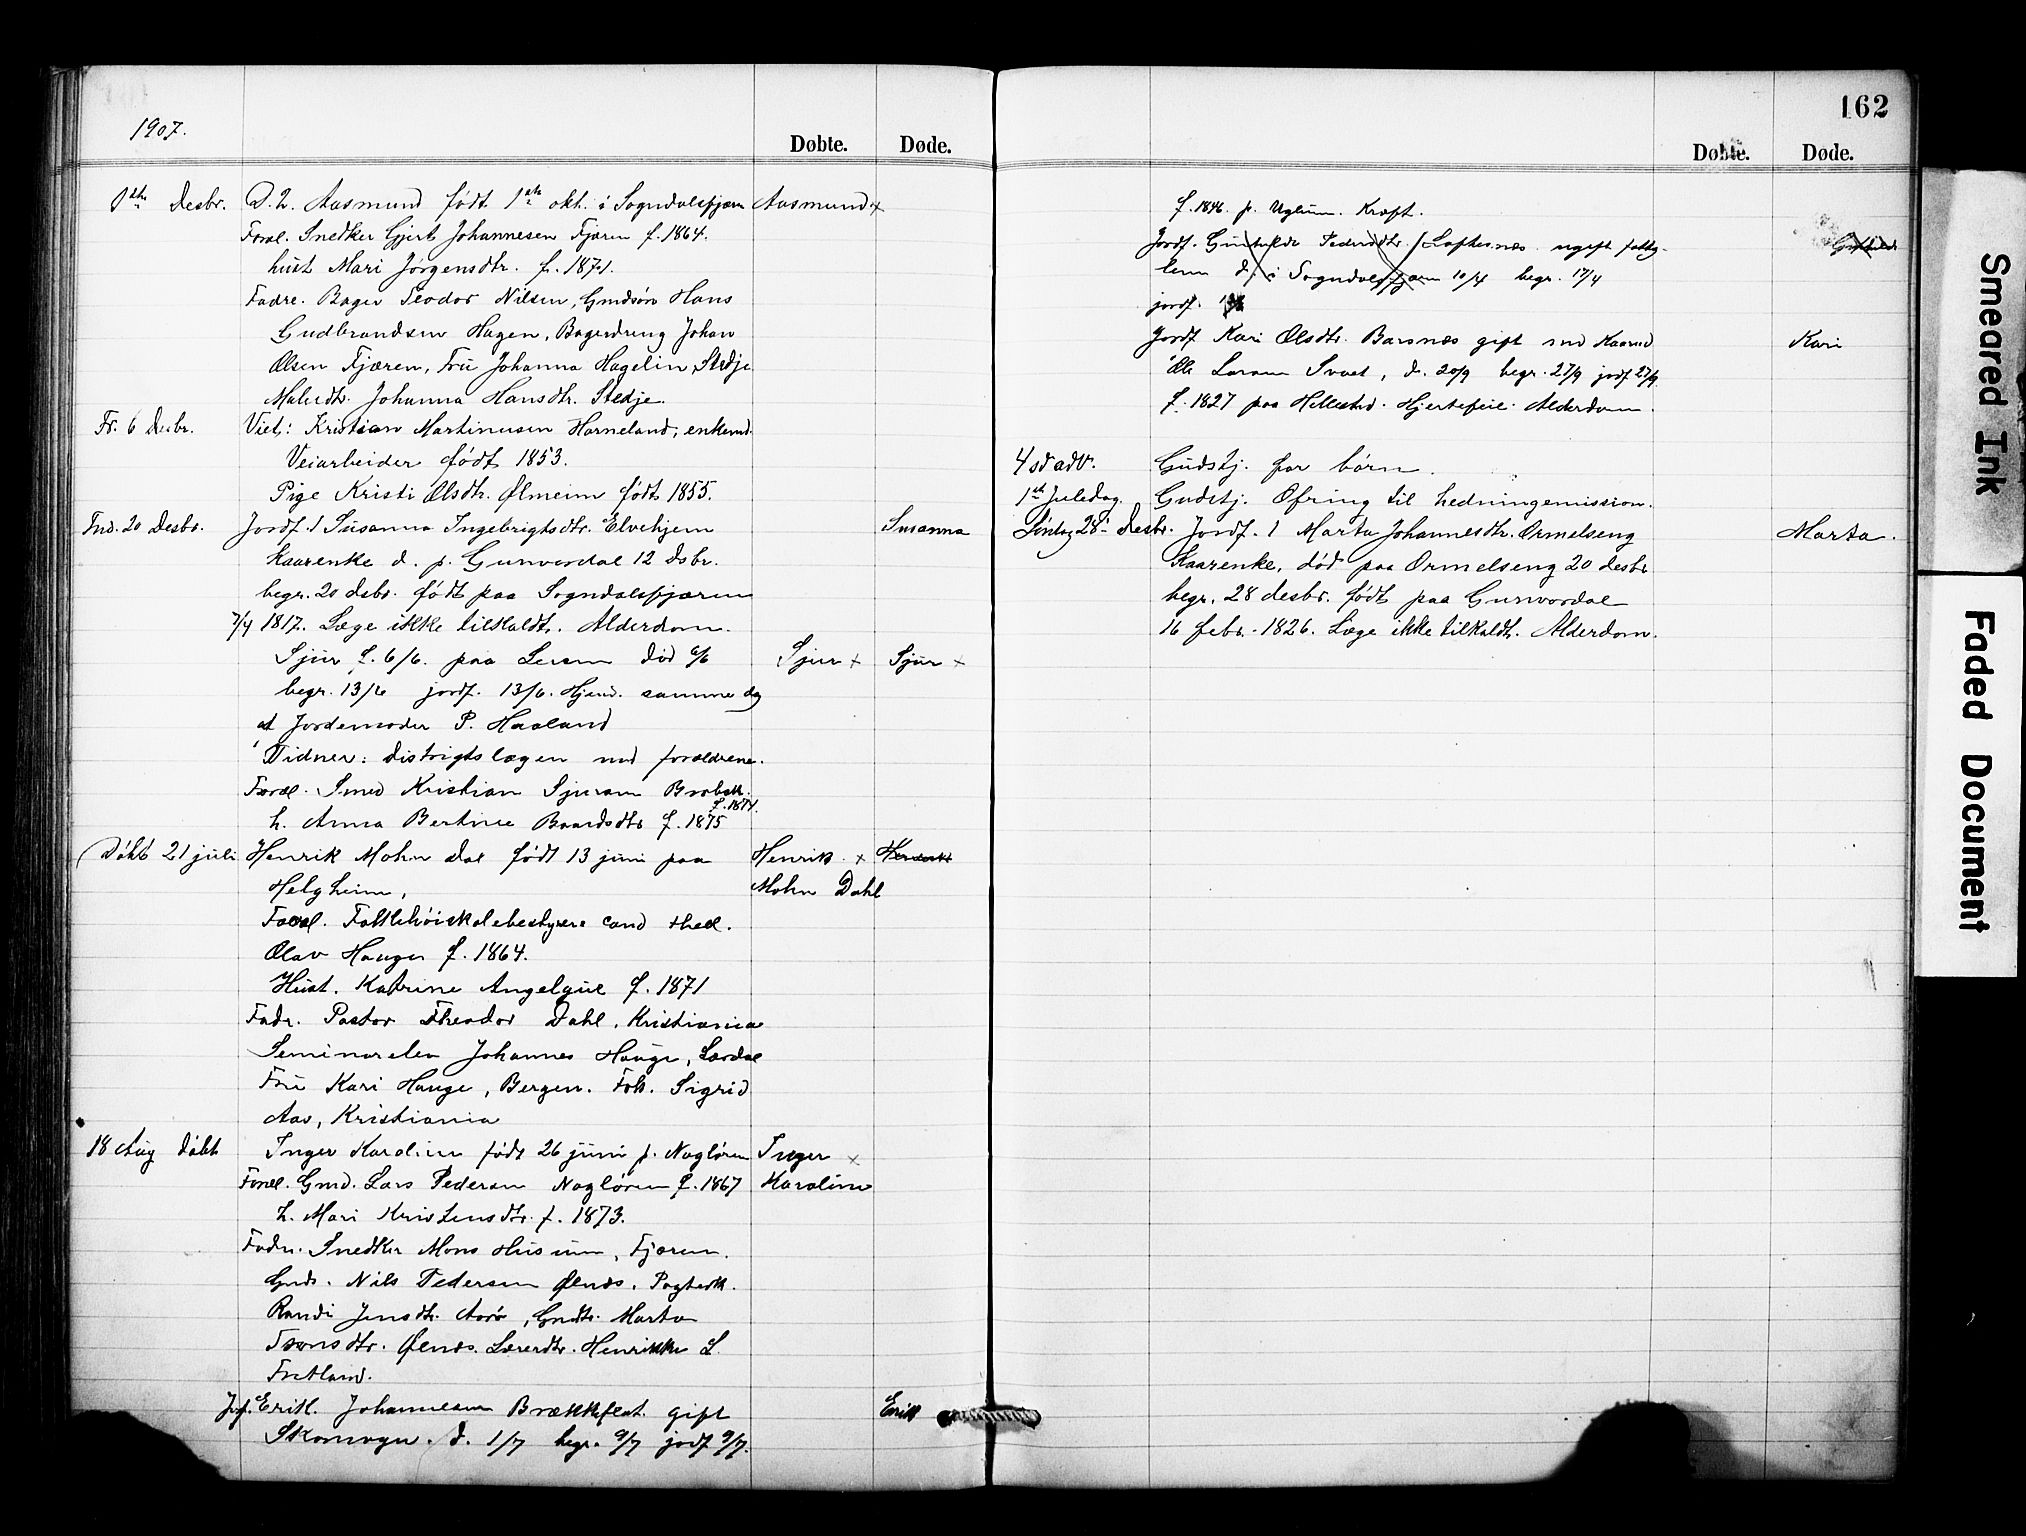 1907.
Døbte. Døde.
1ste Desbr. D. h. Aasmund født 1ste okt. i Sogndalsfjæren Aasmund x
Foræl. Snedker Gjert Johannesen Fjæren f. 1864.
hust Mari Jørgensdtr. f. 1871.
Fadre. Bager Teodor Nilsen, Gmdsøn Hans
Gudbrandsen Hagen, Bagerdreng Johan
Olsen Fjæren, Fru Johanna Hagelin, Stedje
Malerdtr. Johanna Hansdtr. Stedje.
Fr. 6 Desbr. Viet: Kristian Martinusen Horneland, enkemd.
Veiarbeider født 1853.
Pige Kristi Olsdtr. Ølmeim født 1855.
20 Desbr. Jordf. 1 Susanna Ingebrigtsdtr. Elvehjem Susanna
Kaarenke d. p. Gunvordal 12 Dsbr.
begr. 20 dsbr. født paa Sogndalsfjæren
7/4 1817. Læge ikke tilkaldt. Alderdom.
Sjur f. 6/6. paa død 6/6 Sjur x Sjur x
begr. 13/6 jordf. 13/6. Hjemd. samme dag
af Jordemoder P. Haaland
Vidner: distrigtslægen med forældrene.
Foræl. Smed Kristian Sjursen
f. 1874.
h. Anna Bertine Baardsdtr f. 1875
Døbt 21 juli Henrik Mohn Dal født 13 juni paa Henrik x Henrik
Helgheim, Mohn Dahl
Foræl. Folkehøiskolebestyrer cand theol.
Olav Hauge f. 1864.
Hust. Katrine Angelque f. 1871
Fadr. Pastor Theodor Dahl, Kristiania
Seminarelev Johannes Hauge, Lærdal
Fru Kari Hauge, Bergen. Frk. Sigrid
Aas, Kristiania
18 Aug Døbt Inger Karoline født 26 juni p. Nagløren Inger x
Foræl. Gmd. Lars Pedersen Nagløren f. 1867 Karoline
h. Mari Kristensdtr. f. 1873.
Fadr. Snedker Mons Husum, Fjæren.
Gmds. Nils Pedersen Ølnæs.
Randi Jensdtr. Aarø, Gmdtr. Marta
Ølnæs. Lærerdtr. Henrikke L.
Fretland.
Jrf. Erik Johannesen Brækkeflat gift Erik
d. 1/7 begr. 9/7 jordf 9/7.
162
Døbte. Døde.
f. 1846. p. Uglum. Kræft.
Jordf. Pedersdtr. Loftesnæs ugift fattig-
lem d. i Sogndalsfjæren 10/4 begr. 17/4
jordf.
Jordf Kari Olsdtr. Barsnæs gift med Kaarmd Kari
Ole Larsen d. 20/9 begr. 27/9 jordf 27/9
f. 1827 paa Hillestad. Hjertefeil. Alderdom.
4 sd adv. Gudstj. for børn.
1st Juledag. Gudstj. Ofring til hedningemission.
Søndag 28 Desbr. Jordf. 1 Marta Johannesdtr. Ormelseng Marta.
Kaarenke, død paa Ormelseng 20 desbr
begr. 28 desbr. født paa Gunvordal
16 febr. 1826. Læge ikke tilkaldt. Alderdom.
Smeared Ink
Faded Document